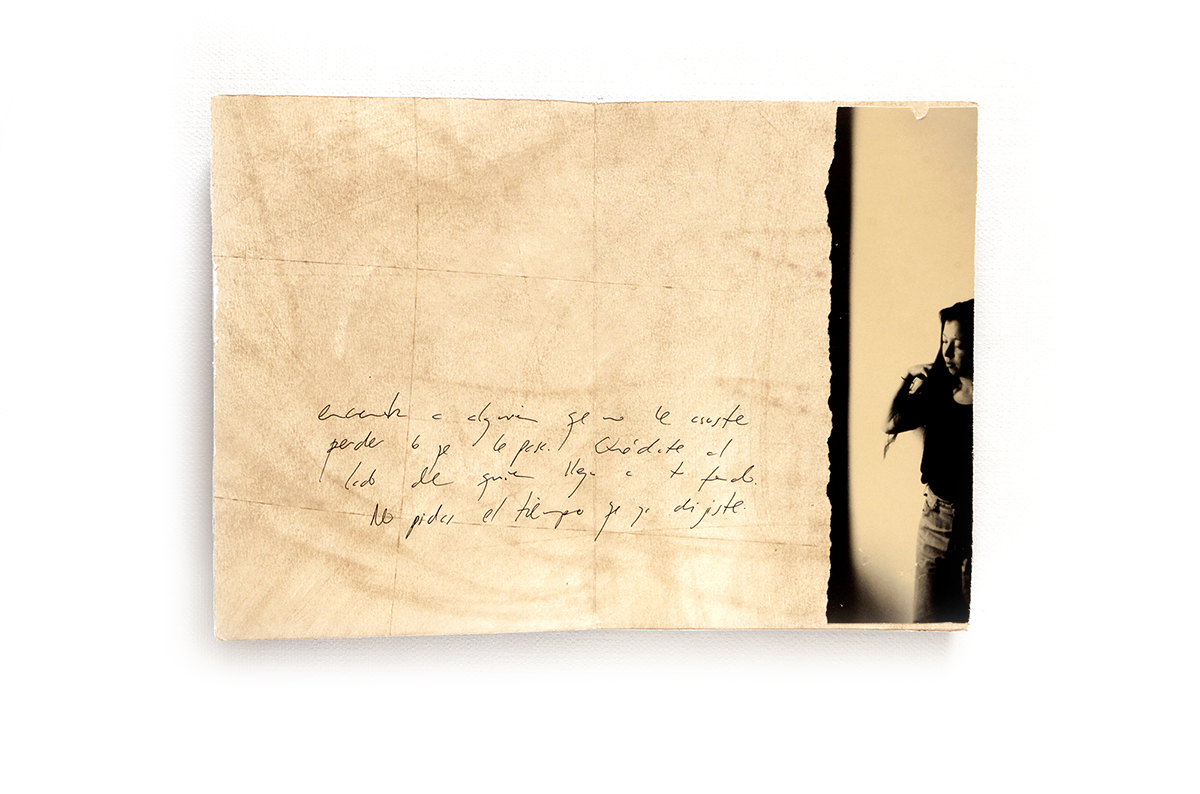 encuentra a alguien qe no le asuste
perder lo qe le pesa. Quédate al
lado de quien llega a tu fondo.
No pidas el tiempo qe ya dijiste.